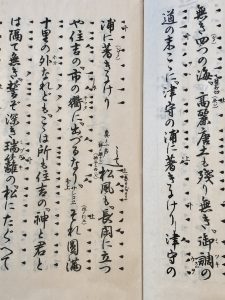 無き四つの海。高麗唐土も残り無き。御調の
道の末こゝに。津守の浦に着きにけり津守の
浦に着きにけり
松風も。長閑に立つ
や住吉の。市の衢に出づるなり。それ圓滿
十里の外なれども。こゝは所も住吉の。神と君と
は隔て無き。誓ぞ深き瑞籬の。松にたぐへて